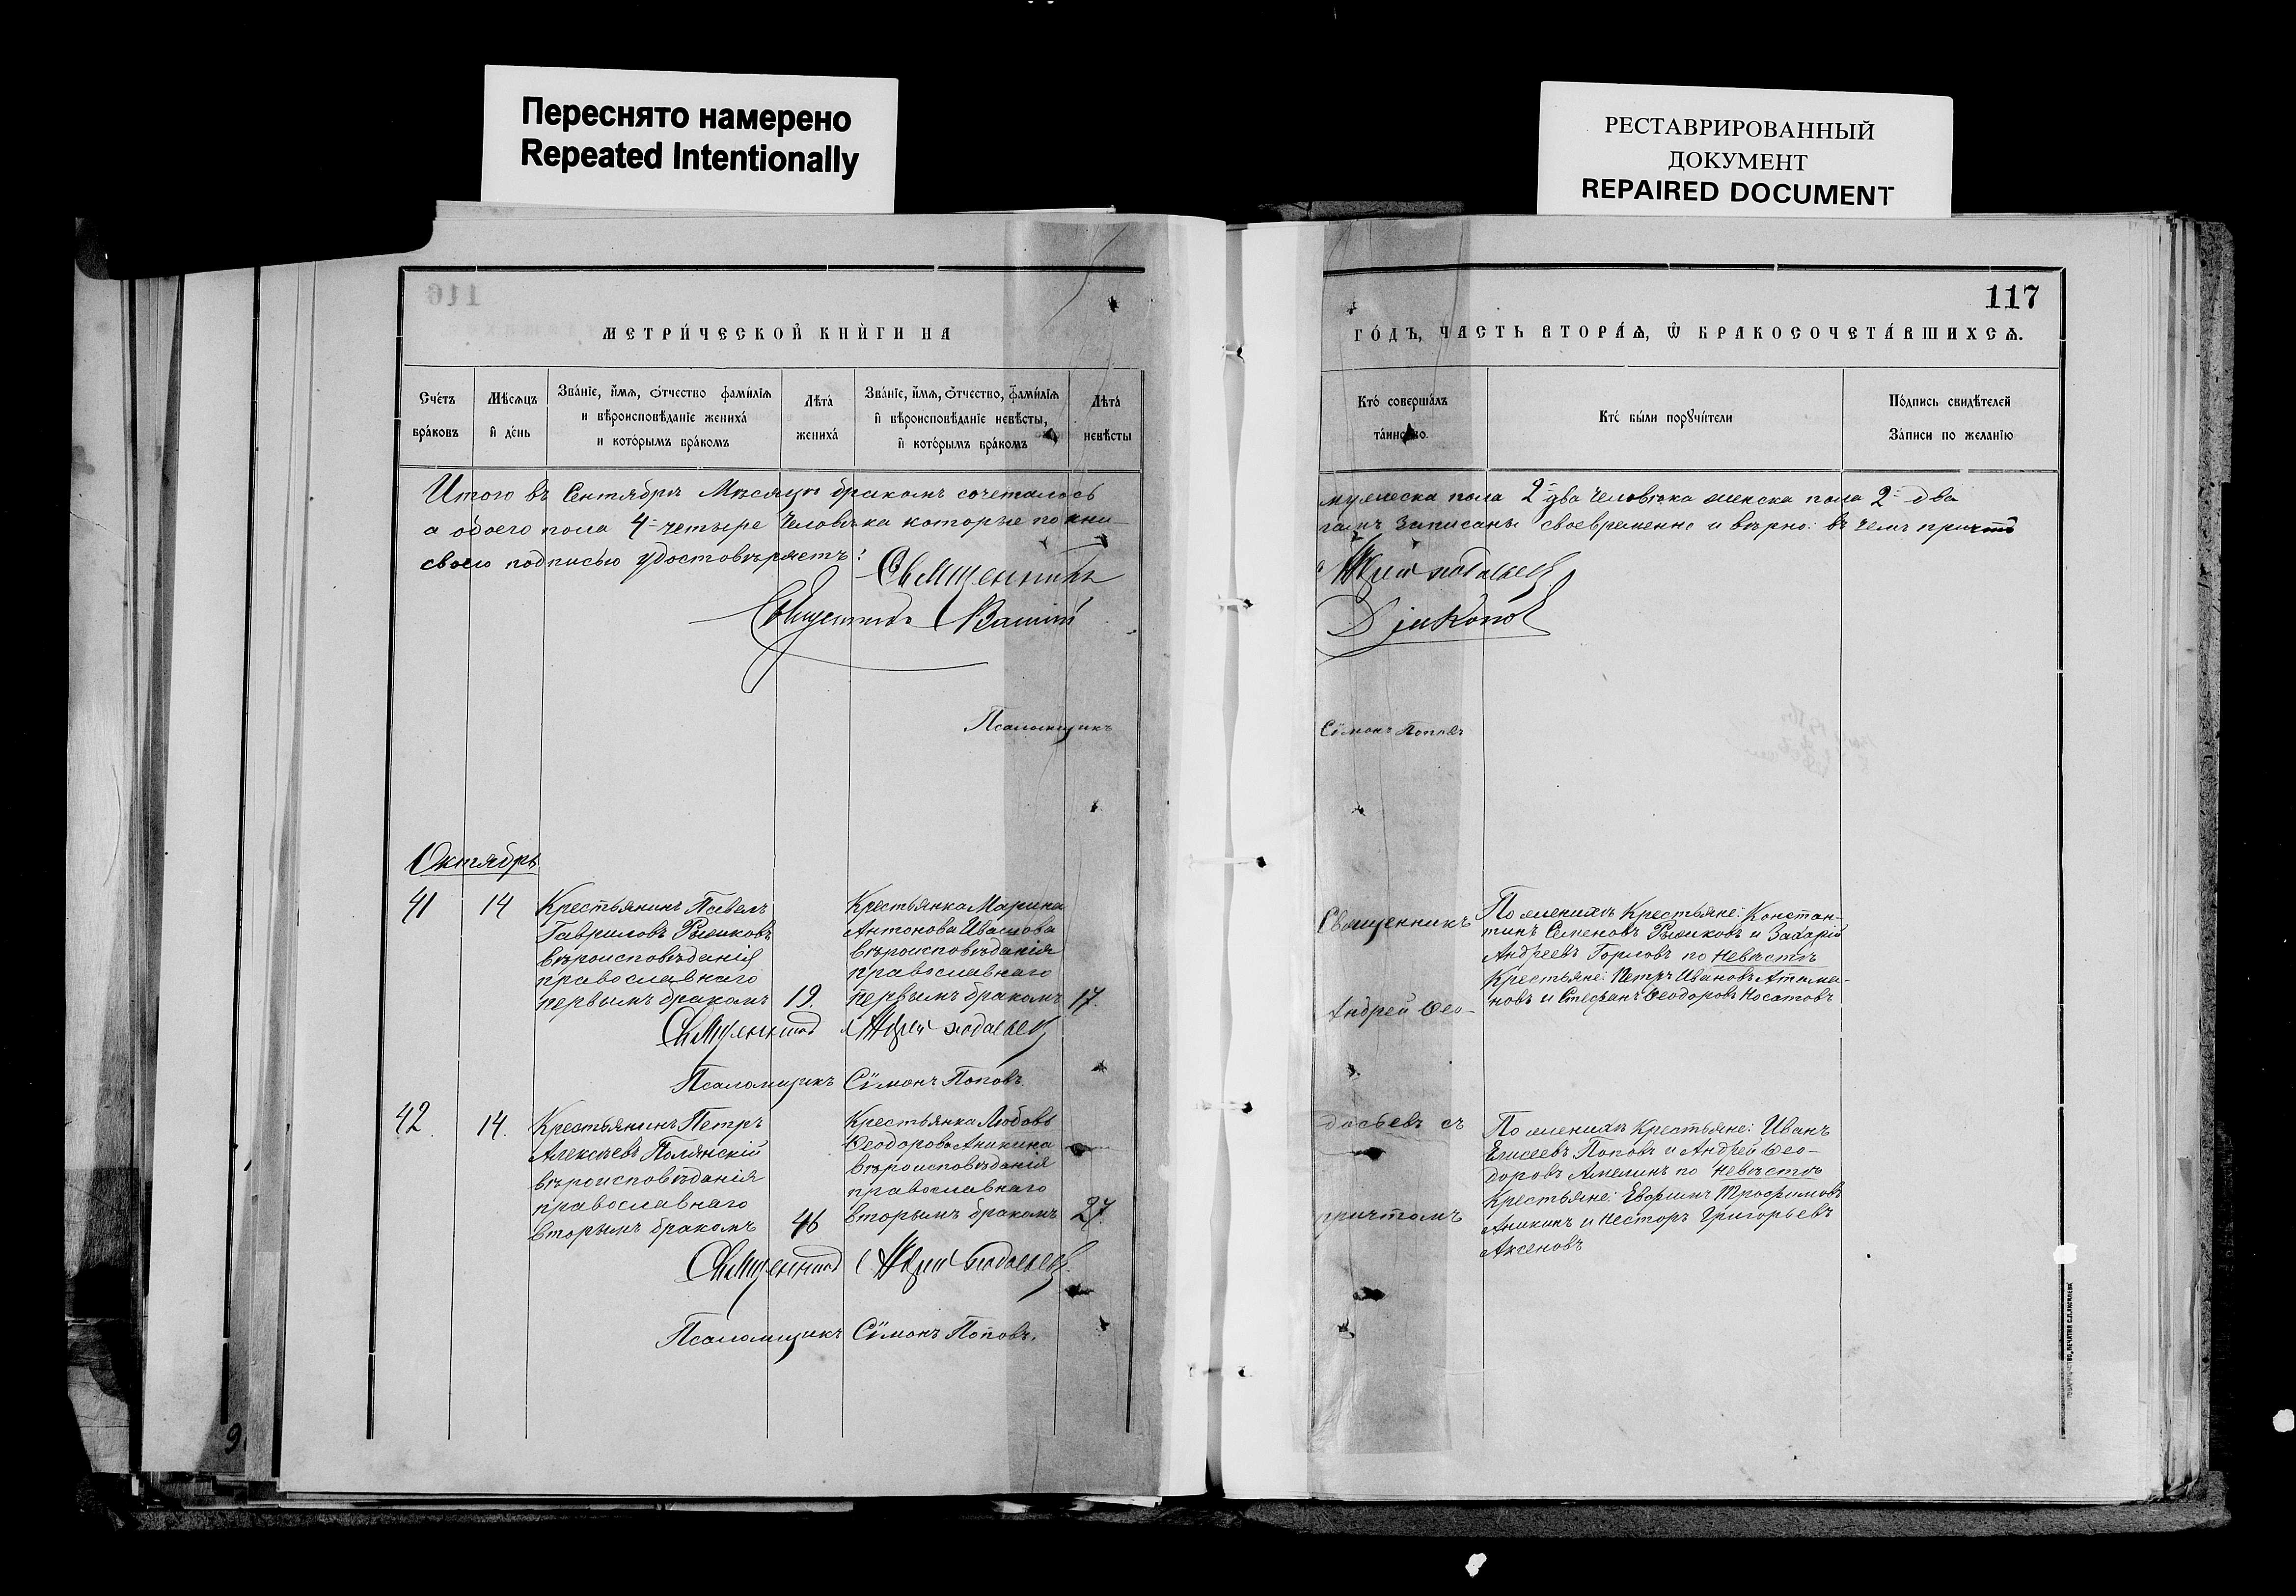 Переснято намерено
Repeated Intentionally
РЕСТАВРИРОВАННЫЙ
ДОКУМЕНТ
REPAIRED DOCUMENT
116
МЕТРИ́ЧЕСКОЙ КНИ́ГИ НА
Сче́тъ
бра́ковъ
Мѣ́сяцъ
и҆ де́нь
Зва́нїе, и҆́мѧ, ѻ҆́тчество фами́лїѧ
и вѣроисповѣ́данїе жениха́
и кото́рымъ бра́комъ
Лѣта̀
жениха́
Зва́нїе, и҆́мѧ, ѻ҆́тчество, фами́лїѧ
и҆ вѣроисповѣ́данїе невѣ́сты,
и҆ кото́рымъ бра́комъ
Лѣта̀
невѣ́сты
Итого въ Сентябрѣ Мѣсяцѣ бракомъ сочеталось
а обоего пола 4 = четыре человѣка которые по кни-
своею подписью удостовѣряетъ:
Священникъ
Священникъ
Псаломщикъ
Октябрь
41
14
Крестьянинъ Павелъ
Гавриловъ Рыжиковъ
вѣроисповѣданія
православнаго
первымъ бракомъ
19.
Крестьянка Марина
Антонова Ивашова
вѣроисповѣданія
православнаго
первымъ бракомъ
17.
Священникъ Андрей Ѳеодосьевъ
Псаломщикъ Сѵмонъ Поповъ.
42.
14.
Крестьянинъ Петръ
Алексѣевъ Полянскій
вѣроисповѣданія
православнаго
вторымъ бракомъ
46
Крестьянка Любовь
Ѳеодорова Аникина
вѣроисповѣданія
православнаго
вторымъ бракомъ
27.
Священникъ Андрей Ѳеодосьевъ.
Псаломщикъ Сѵмонъ Поповъ.
9
117
ГО́ДЪ, ЧАСТЬ ВТОРА́Ѧ, Ѽ БРАКОСОЧЕТА́ВШИХСѦ.
Кто́ соверша́лъ
та́инство.
Кто́ бы́ли порꙋчи́тели
По́дпись свидѣ́телей
За́писи по жела́нїю
мужеска пола 2 = два человѣка женска пола 2 = два
гамъ записаны своевременно и вѣрно: въ чемъ причтъ
Андрей Ѳеодосьевъ
Дьяконовъ
Сѵмонъ Поповъ
Священникъ
Андрей Ѳео-
досьевъ съ
причтомъ
По женихѣ Крестьяне: Констан-
тинъ Семеновъ Рыжиковъ и Захарій
Андреевъ Горловъ по Невѣстѣ
Крестьяне: Петръ Ивановъ Атама-
новъ и Стефанъ Ѳеодоровъ Носатовъ
По женихѣ Крестьяне: Иванъ
Елисеевъ Поповъ и Андрей Ѳео-
доровъ Амелинъ по Невѣстѣ
Крестьяне: Евфимъ Трофимовъ
Аникинъ и Несторъ Григорьевъ
Аксеновъ